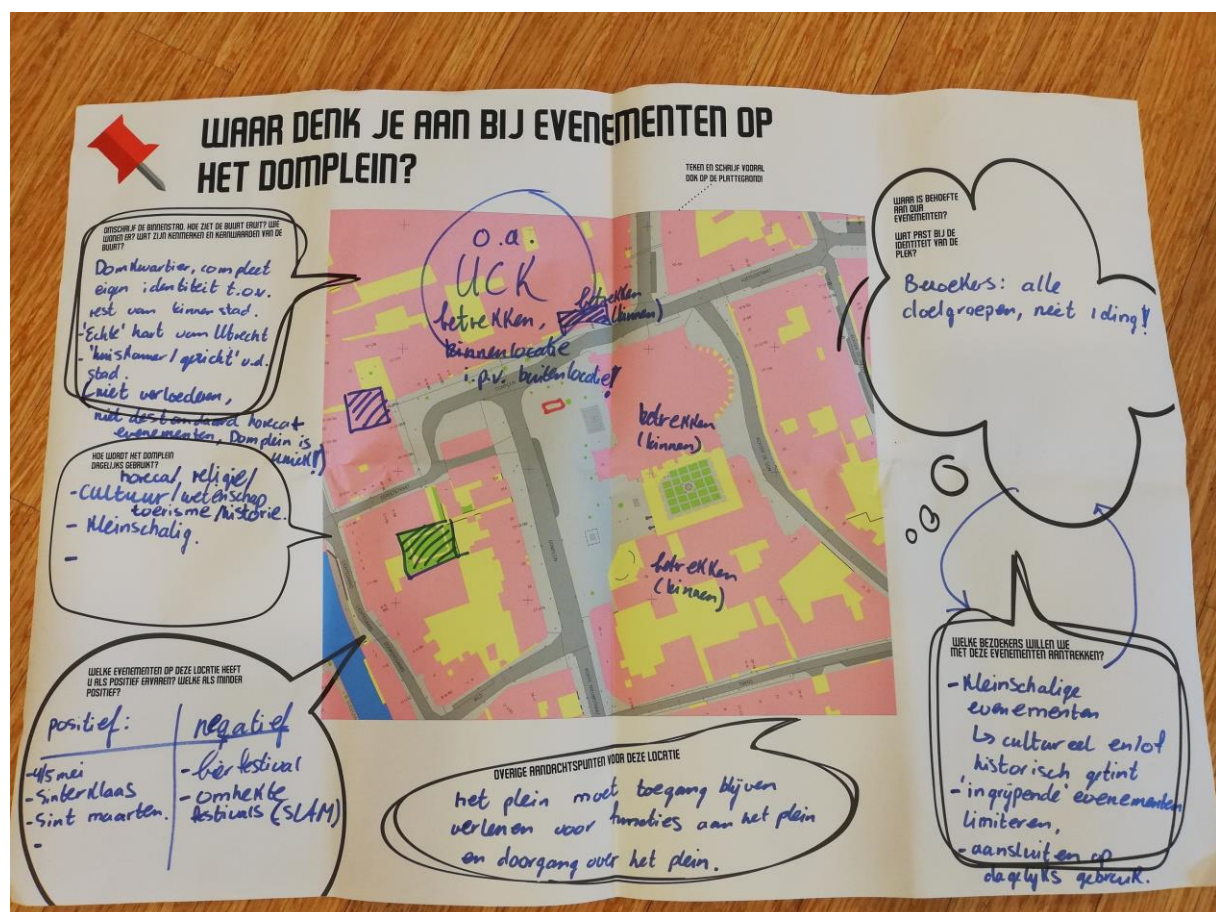 WAAR DENK JE AAN BIJ EVENEMENTEN OP
HET DOMPLEIN?
TEKEN EN SCHRIJF VOORAL
OOK OP DE PLATTEGROND!
OMSCHRIJF DE BINNENSTAD. HOE ZIET DE BUURT ERUIT? WIE
WONEN ER? WAT ZIJN KENMERKEN EN KERNWAARDEN VAN DE
BUURT?
Domkwartier, compleet
eigen identiteit t.o.v.
rest van binnenstad.
-'Echte' hart van Utrecht
- 'huiskamer/gezicht' v.d.
stad.
niet verloederen,
niet de standaard horeca+
evenementen, Domplein is
uniek!)
HOE WORDT HET DOMPLEIN
DAGELIJKS GEBRUIKT?
horeca/, religie/
- Cultuur/wetenschap
toerisme/historie.
- Kleinschalig.
-
WELKE EVENEMENTEN OP DEZE LOCATIE HEEFT
U ALS POSITIEF ERVAREN? WELKE ALS MINDER
POSITIEF?
positief:
- 4/5 mei
- Sinterklaas
- Sint maarten.
-
negatief
- bierfestival
- omhekte
festivals (SLAM)
o.a.
UCK
betrekken,
binnenlocatie
i.p.v. buitenlocatie!
betrekken
(binnen)
betrekken
(binnen)
betrekken
(binnen)
OVERIGE AANDACHTSPUNTEN VOOR DEZE LOCATIE
het plein moet toegang blijven
verlenen voor functies aan het plein
en doorgang over het plein.
WAAR IS BEHOEFTE
AAN QUA
EVENEMENTEN?
WAT PAST BIJ DE
IDENTITEIT VAN DE
PLEK?
Bezoekers: alle
doelgroepen, niet 1 ding!
WELKE BEZOEKERS WILLEN WE
MET DEZE EVENEMENTEN AANTREKKEN?
- Kleinschalige
evenementen
↳ cultureel en/of
historisch getint
- 'ingrijpende' evenementen
limiteren,
- aansluiten op
dagelijks gebruik.